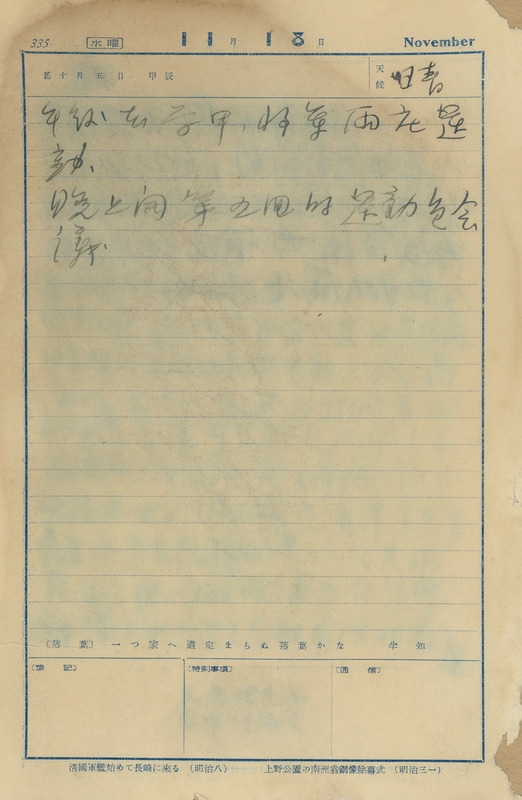 335 水曜 11月18日 November
舊十月五日 甲辰 天候 晴
午後在学甲,将軍両庄運
動、
晚上開第五回的運動包会
議
〔落葉〕 一つ家へ道定まらぬ落葉かな
〔豫記〕 〔特別事項〕 〔通信〕
淸國軍艦始めて長崎に来る (明治八) 上野公園の南洲翁銅像除幕式 (明治三一)